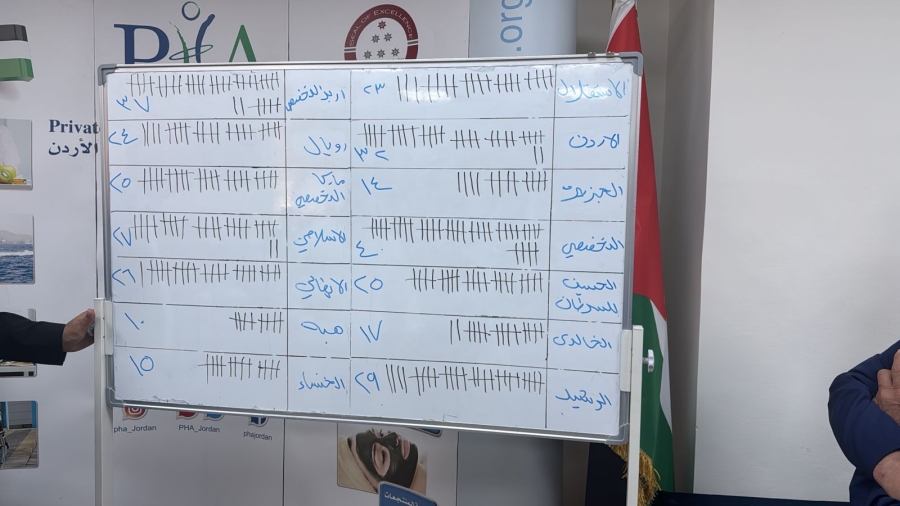 SEAL OF EXCELLENCE
.org
Private
الأردن
الاستقلال ٢٣
اربد التخصصي ٣٧
الاردن ٣٢
رويال ٢٤
الجزيرة ١٤
ماركا التخصصي ٢٥
التخصصي ٤٠
الاسلامي ٢٧
الحسين للسرطان ٢٥
٢٦
الخالدي ١٧
هبه ١٠
٢٩
الخنساء ١٥
pha_Jordan
PHA_Jordan
phajordan